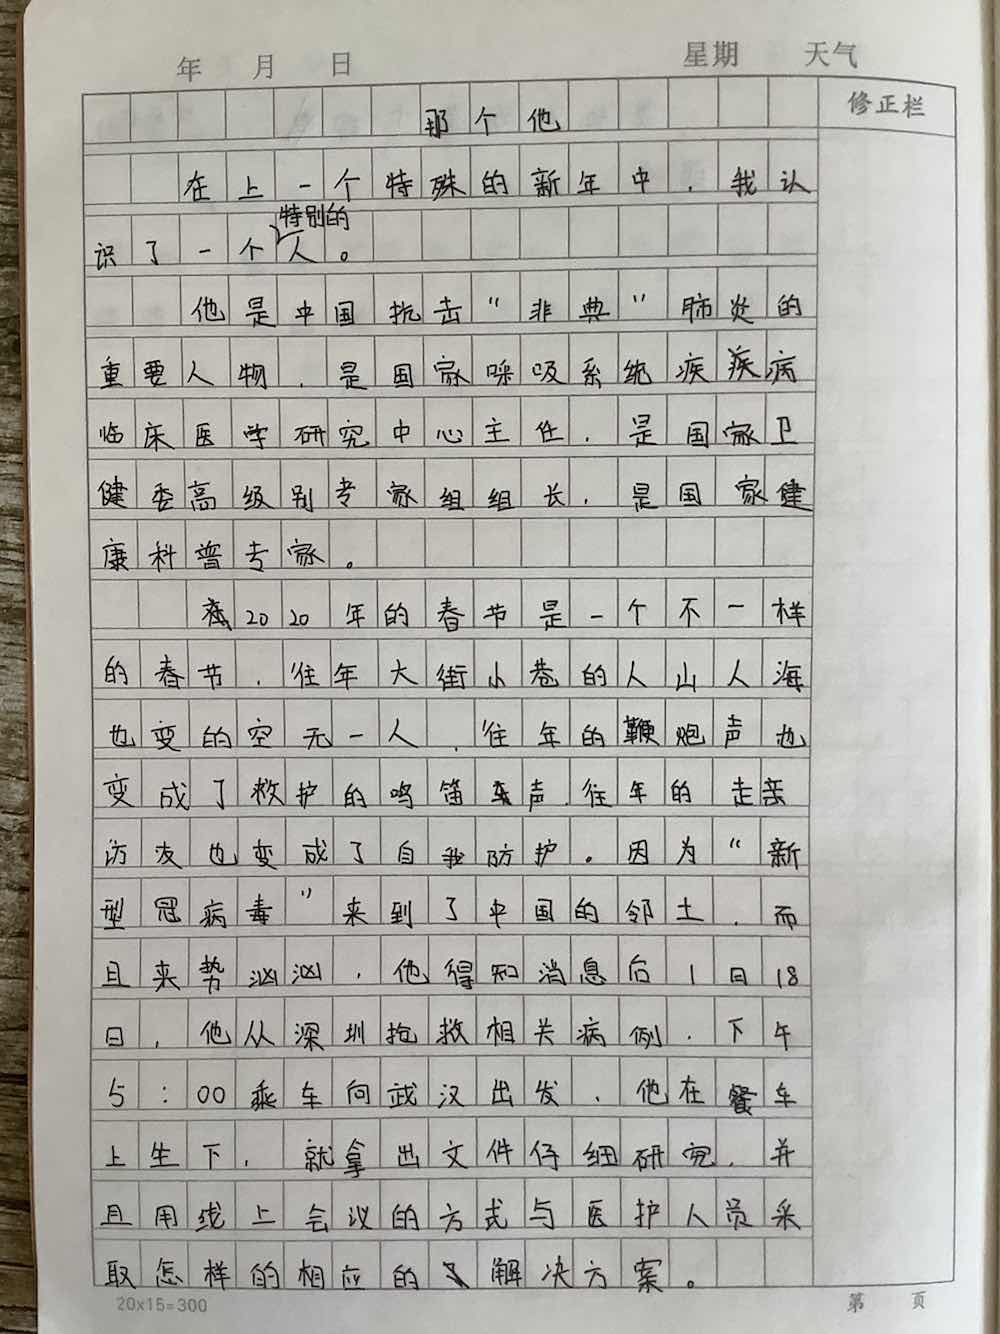 年 月 日 星期 天气
修正栏
那个他
在上一个特殊的新年中，我认
识了一个特别的人。
他是中国抗击“非典”肺炎的
重要人物，是国家呼吸系统疾疾病
临床医学研究中心主任，是国家卫
健委高级别专家组组长，是国家健
康科普专家。
2020年的春节是一个不一样
的春节，往年大街小巷的人山人海
也变的空无一人，往年的鞭炮声也
变成了救护的鸣笛车声，往年的走亲
访友也变成了自我防护。因为“新
型冠病毒”来到了中国的邻土，而
且来势汹汹，他得知消息后1日18
日，他从深圳抢救相关病例，下午
5:00乘车向武汉出发，他在餐车
上坐下，就拿出文件仔细研究，并
且用线上会议的方式与医护人员采
取怎样的相应的解决方案。
20x15=300 第 页